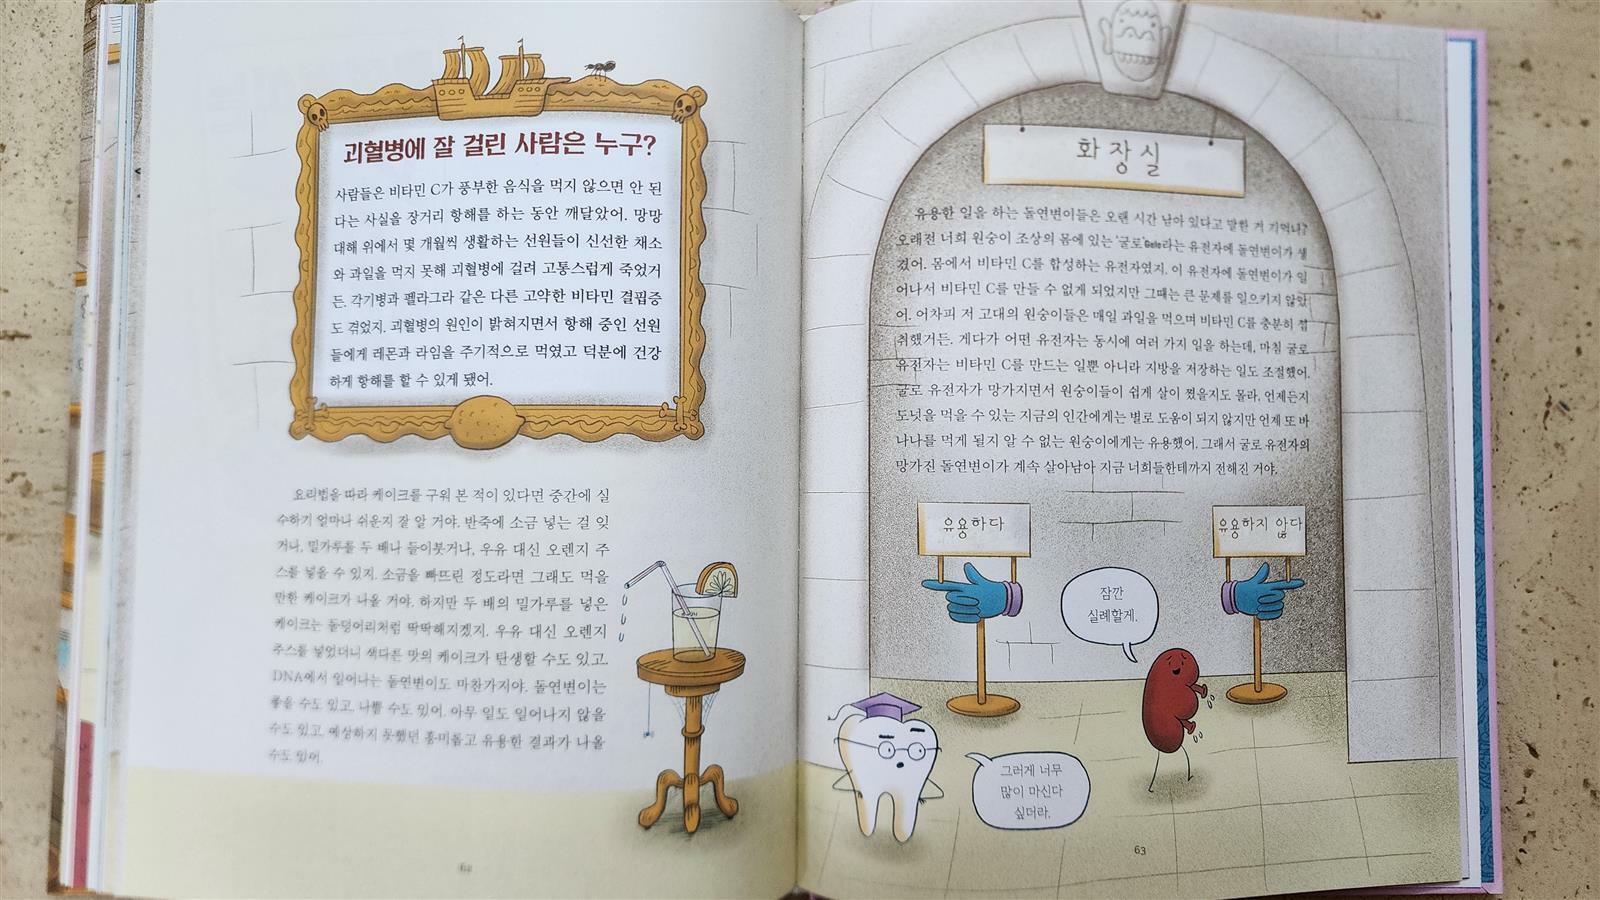 괴혈병에 잘 걸린 사람은 누구?
사람들은 비타민 C가 풍부한 음식을 먹지 않으면 안 된
다는 사실을 장거리 항해를 하는 동안 깨달았어. 망망
대해 위에서 몇 개월씩 생활하는 선원들이 신선한 채소
와 과일을 먹지 못해 괴혈병에 걸려 고통스럽게 죽었거
든. 각기병과 펠라그라 같은 다른 고약한 비타민 결핍증
도 겪었지. 괴혈병의 원인이 밝혀지면서 항해 중인 선원
들에게 레몬과 라임을 주기적으로 먹였고 덕분에 건강
하게 항해를 할 수 있게 됐어.
요리법을 따라 케이크를 구워 본 적이 있다면 중간에 실
수하기 얼마나 쉬운지 잘 알 거야. 반죽에 소금 넣는 걸 잊
거나, 밀가루를 두 배나 들이붓거나, 우유 대신 오렌지 주
스를 넣을 수 있지. 소금을 빠뜨린 정도라면 그래도 먹을
만한 케이크가 나올 거야. 하지만 두 배의 밀가루를 넣은
케이크는 돌덩어리처럼 딱딱해지겠지. 우유 대신 오렌지
주스를 넣었더니 색다른 맛의 케이크가 탄생할 수도 있고.
DNA에서 일어나는 돌연변이도 마찬가지야. 돌연변이는
좋을 수도 있고, 나쁠 수도 있어. 아무 일도 일어나지 않을
수도 있고, 예상하지 못했던 흥미롭고 유용한 결과가 나올
수도 있어.
62
화장실
유용한 일을 하는 돌연변이들은 오랜 시간 남아 있다고 말한 거 기억나?
오래전 너희 원숭이 조상의 몸에 있는 '굴로'Gulo라는 유전자에 돌연변이가 생
겼어. 몸에서 비타민 C를 합성하는 유전자였지. 이 유전자에 돌연변이가 일
어나서 비타민 C를 만들 수 없게 되었지만 그때는 큰 문제를 일으키지 않았
어. 어차피 저 고대의 원숭이들은 매일 과일을 먹으며 비타민 C를 충분히 섭
취했거든. 게다가 어떤 유전자는 동시에 여러 가지 일을 하는데, 마침 굴로
유전자는 비타민 C를 만드는 일뿐 아니라 지방을 저장하는 일도 조절했어.
굴로 유전자가 망가지면서 원숭이들이 쉽게 살이 쪘을지도 몰라. 언제든지
도넛을 먹을 수 있는 지금의 인간에게는 별로 도움이 되지 않지만 언제 또 바
나나를 먹게 될지 알 수 없는 원숭이에게는 유용했어. 그래서 굴로 유전자의
망가진 돌연변이가 계속 살아남아 지금 너희들한테까지 전해진 거야.
유용하다
유용하지 않다
잠깐
실례할게.
그러게 너무
많이 마신다
싶더라.
63